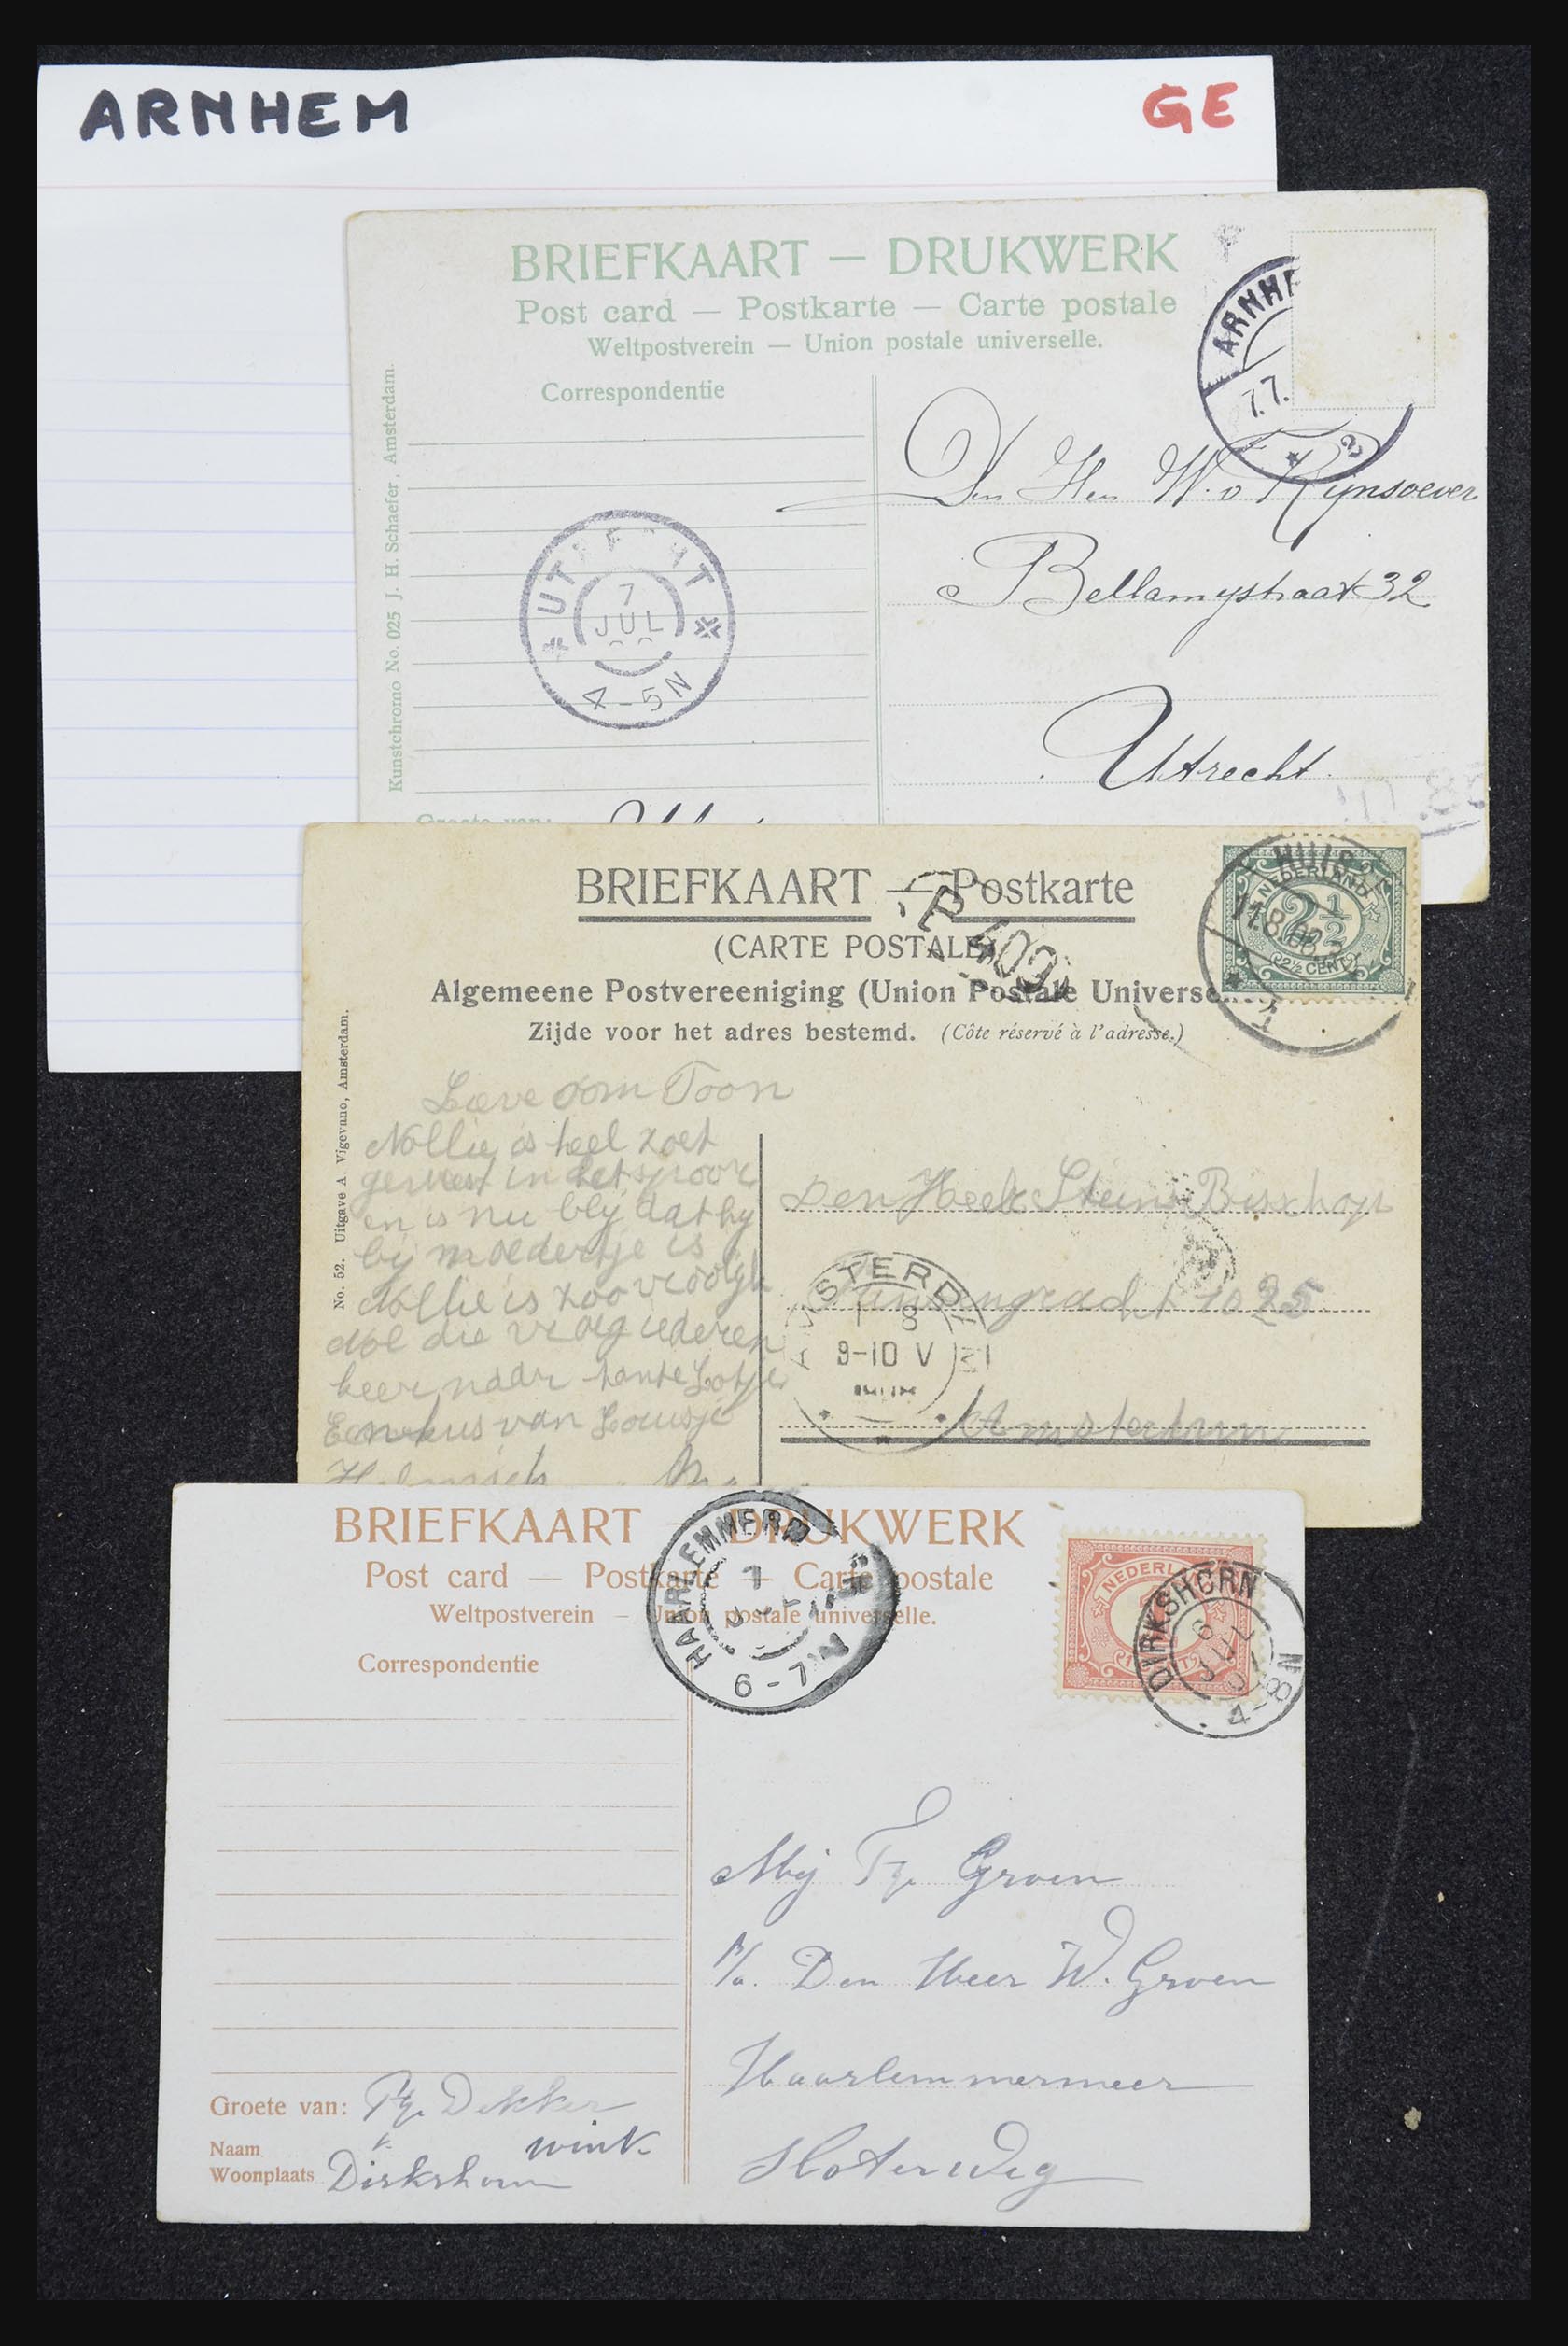 ARNHEM
GE
BRIEFKAART — DRUKWERK
Post card — Postkarte — Carte postale
Weltpostverein — Union postale universelle.
Correspondentie
Kunstchromo No. 025 J. H. Schaefer, Amsterdam.
ARNHE
7.7.
2
UTRECHT
7
JUL
4-5N
Den Heer W. v Rijnsoever
Bellamystraat 32
Utrecht.
Groete van:
BRIEFKAART — Postkarte
(CARTE POSTALE)
Algemeene Postvereeniging (Union Postale Universelle)
Zijde voor het adres bestemd. (Côte réservé à l'adresse.)
No. 52. Uitgave A. Vigevano, Amsterdam.
NEDERLAND
2½
2½ CENT
Lieve oom Toon
Nollie is heel zoet
geweest in het spoor
en is nu blij dat hy
bij moedertje is
Nollie is zoo vroolijk
die vraag iederen
keer naar tante Lotje
Een kus van Lousje
Den Heer Bisschop
1025
AMSTERDAM
8
9-10 V
Amsterdam
BRIEFKAART — DRUKWERK
Post card — Postkarte — Carte postale
Weltpostverein — Union postale universelle.
Correspondentie
HAARLEMMERM
7
6-7
NEDERL
DIRKSHORN
6
JUL
07
4-8N
Mej Tr. Groen
p/a. Den Heer W. Groen
Haarlemmermeer
Sloterweg
Groete van: Dekker
wink
Naam
Woonplaats Dirkshorn